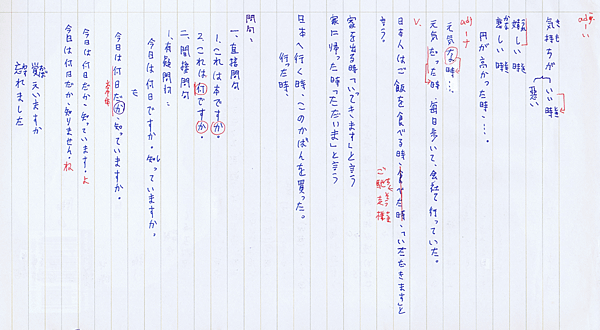 adj-い
気持ちが いい時 悪い
嬉しい時
悲しい時
円が高かった時…。
adj-ナ
元気な時…
元気だった時、毎日歩いて、会社で行っていた。
V.
日本人はご飯を食べる時、「いただきます」と言う。
食べた時、
ご馳走様
家を出る時「いってきます」と言う
家に帰った時「ただいま」と言う
日本へ行く時、このかばんを買った。
行った時、
問句、
一、直接問句
1、これは本ですか。
2、これは何ですか。
二、間接問句
1、有疑問詞：
今日は何日ですか。知っていますか。
だ
今日は何日だか、知っていますか。
今日は何日だか、知っています。よ
今日は何日だか、知りません。ね
覚えていますか
忘れました